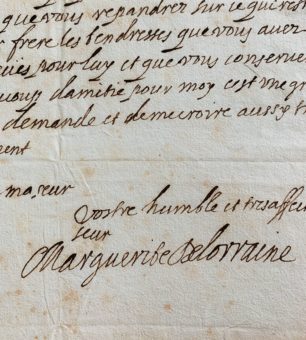 que vous repandrer sur ce qui rest
frere les tendresses que vous aver
eües pour luy et que vous conserver
coup damitié pour moy c'est une gr
demande et de me croire aussy tr
ment
ma seur
vostre humble et tres affec
seur
Marguerite de lorraine